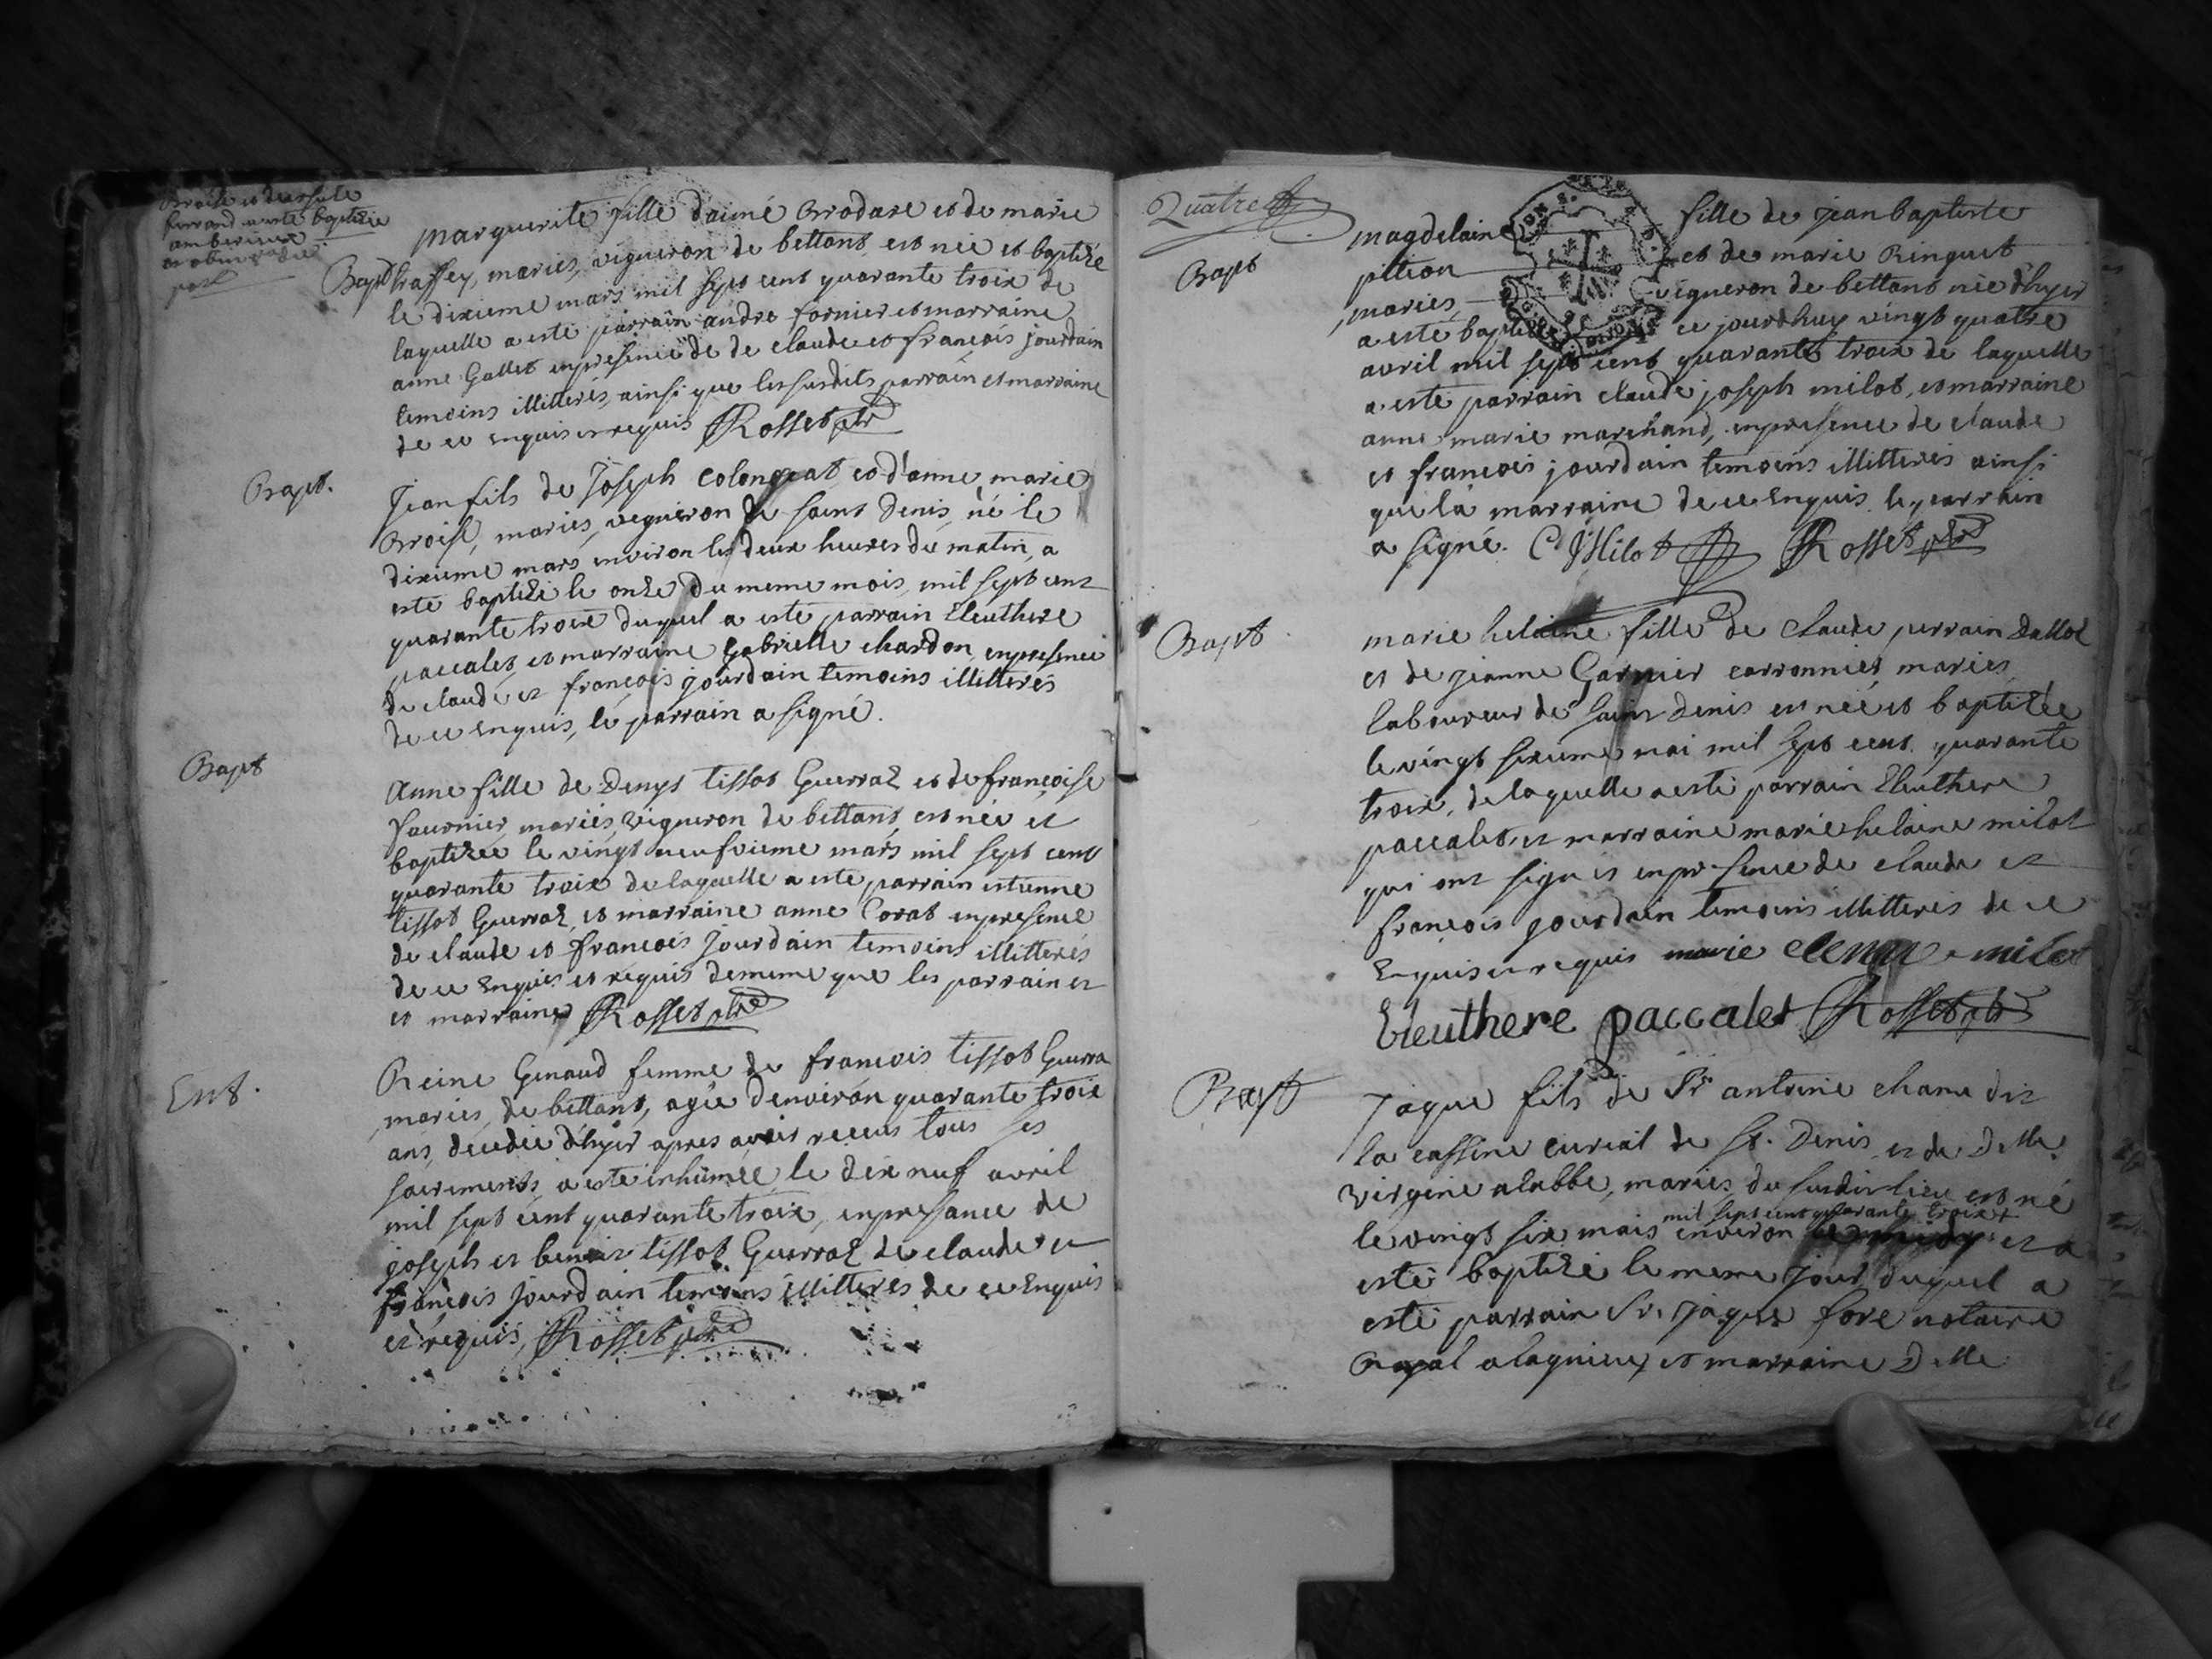 ferrand a esté baptizée
Bapt
marguerite fille daimé Brodare et de marie
traffey, mariés, vigneron de bettans est née et baptizé
le dixieme mars mil sept cent quarante trois de
laquelle a esté parrain andre fornier et marraine
anne Gallet en presence de de claude et françois jourdain
temoins illitterés, ainsi que les susdits parrain et marraine
de ce enquis et requis Rosset ptre
Bapt.
Jean fils de Joseph et d'anne marie
Broise, mariés, vigneron de saint Denis, né le
dixieme mars environ les deux heures du matin, a
esté baptizé le onze du meme mois, mil sept cent
quarante troix duquel a esté parrain Eleuthere
paccalet, et marraine Gabrielle chardon, en presence
de claude et françois jourdain temoins illitterés
de ce enquis, le parrain a signé.
Bapt
Anne fille de Denys tissot Guerraz et de françoise
fournier, mariés, vigneron de bettans, est née et
baptizée le vingt neufvieme mars mil sept cent
quarante troix de laquelle a esté parrain estienne
tissot Guerraz, et marraine anne Corat en presence
de claude et françois Jourdain temoins illitterés
de ce enquis et requis de meme que les parrain et
et marraine Rosset ptre
Ent.
Reine Genaud femme de francois tissot Guerra
mariés, de bettans, agée d'environ quarante troix
ans, decedée d'hyer apres avoir receus tous ses
sacrements, a esté inhumée le dix neuf avril
mil sept cent quarante troix, en presance de
joseph et benoit tissot Guerraz de claude et
françois jourdain temoins illitteres de ce enquis
et requis, Rosset ptre
Quatre
Bapt
magdelaine fille de jean baptiste
pition et de marie Ringuet
mariés vigneron de bettans née d'hyer
a esté baptizée ce jourdhuy vingt quatre
avril mil sept cent quarante troix de laquelle
a esté parrain claude joseph milot, et marraine
anne marie marchand, en presence de claude
et francois jourdain temoins illitterés ainsi
que la marraine de ce enquis le parrain
a signé. C J Milot Rosset ptre
Bapt
marie helaine fille de claude perrain Dallot
et de jeanne Garnier carronnier, mariés,
laboureur de saint denis est née et baptizée
le vingt sixieme mai mil sept cent quarante
troix, de laquelle a esté parrain Eleuthere
paccalet, et marraine marie helaine milot
qui ont signés en presence de claude et
françois jourdain temoins illitterés de ce
enquis et requis marie milot
Eleuthere paccalet Rosset ptre
Bapt
Jaque fils de Sr antoine chanu dit
la cassine curial de St. Denis et de Delle
Virginie alabbe, mariés, du susdit lieu est né
mil sept cent quarante troix +
le vingt six mais environ et a
esté baptizé le meme jour, duquel a
esté parrain Sr. Jaques fore notaire
Royal a lagnieu, et marraine Delle